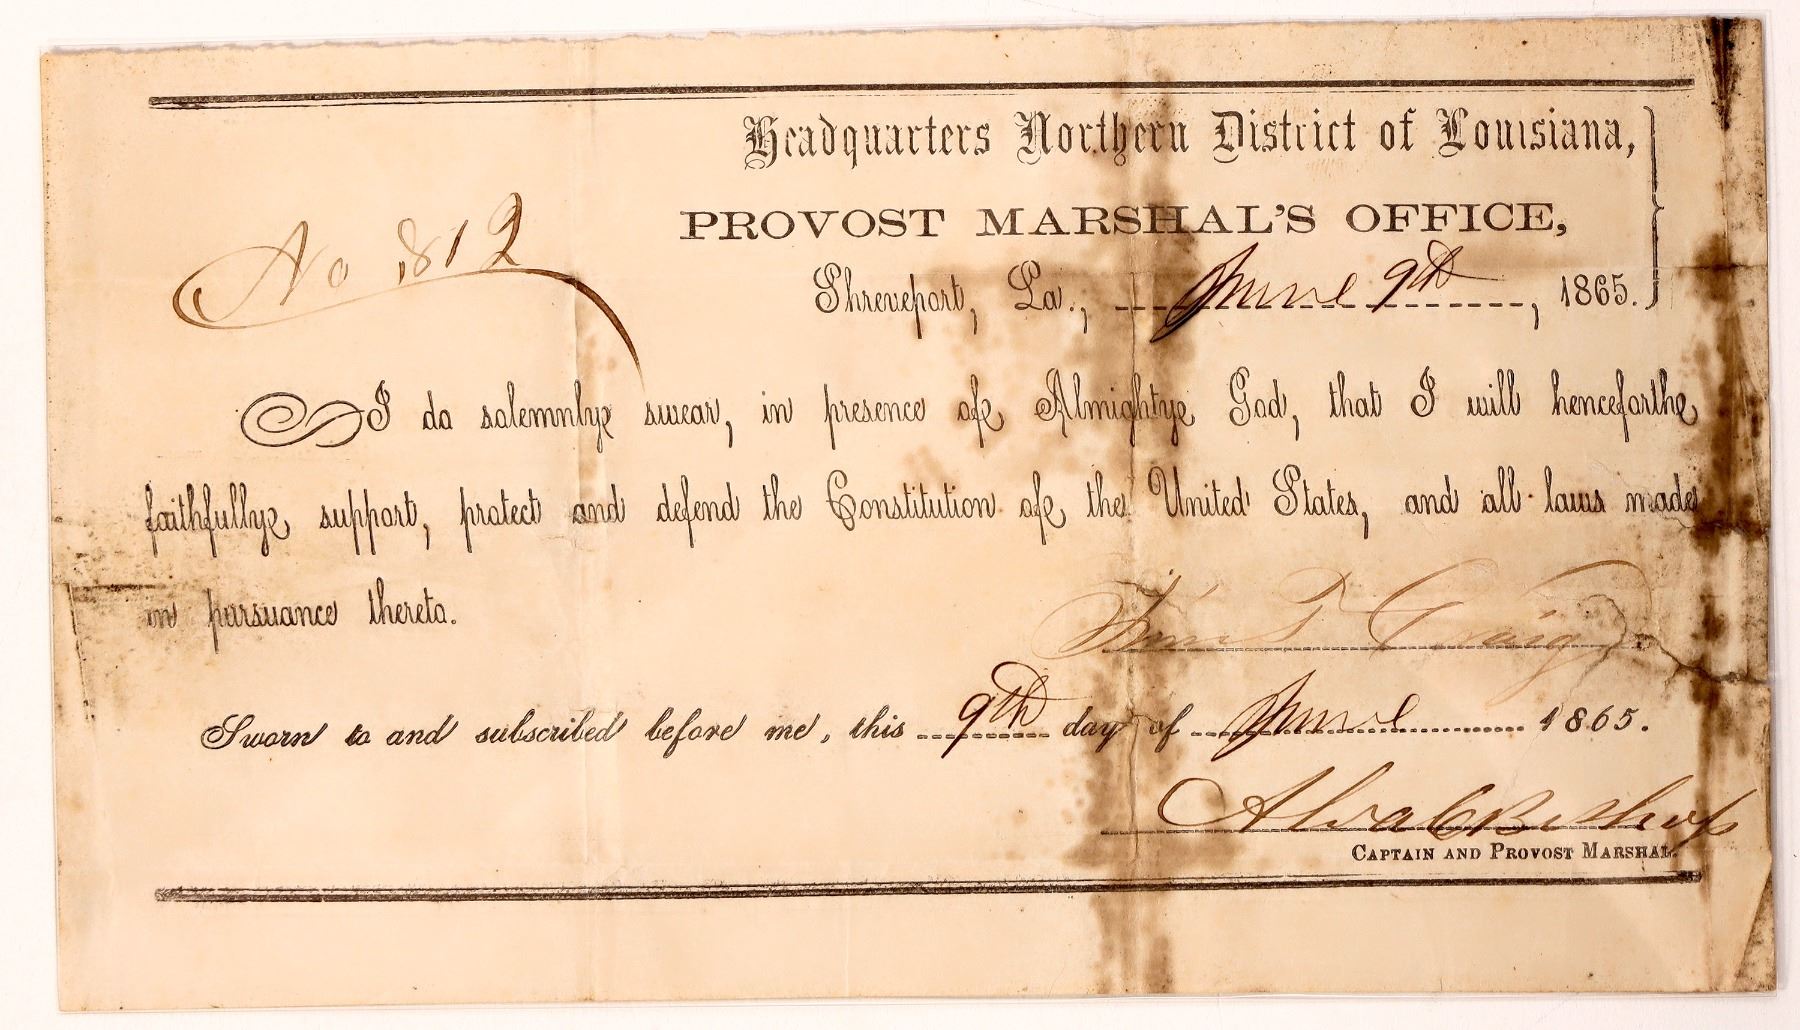 Headquarters Northern District of Louisiana,
PROVOST MARSHAL'S OFFICE,
No 812
Shreveport, La., June 9th, 1865.
I do solemnly swear, in presence of Almighty God, that I will henceforth
faithfully support, protect and defend the Constitution of the United States, and all laws made
in pursuance thereto.
Wm T Craig
Sworn to and subscribed before me, this 9th day of June 1865.
Alva C Bishop
CAPTAIN AND PROVOST MARSHAL.